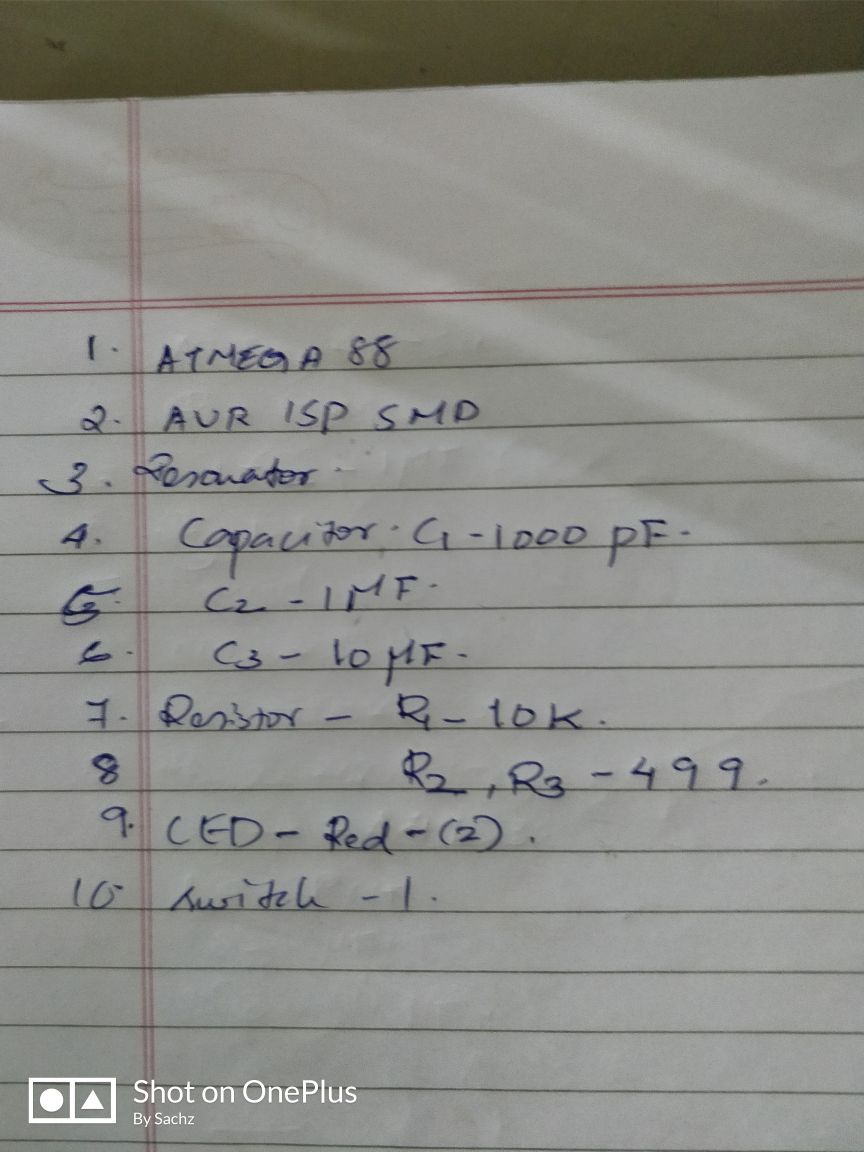 1. ATMEGA 88
2. AVR ISP SMD
3. Resonator.
4. Capacitor. C1 - 1000 pF.
5. C2 - 1 µF.
6. C3 - 10 µF.
7. Resistor - R1 - 10K.
8 R2, R3 - 499.
9. LED - Red - (2).
10 switch - 1.
Shot on OnePlus
By Sachz